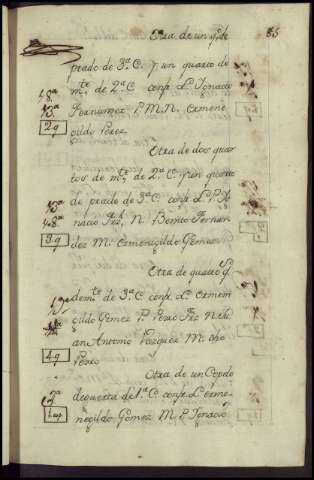 Otra de un q.to de 85
prado de 3.ª C. y un quarto de
m.te de 2.ª C. conf. L. Ignacio
Fernandez P. M. N. Ermene
gildo Perez
2 q
Otra de dos quar
tos de m.te de 2.ª C. y un quarto
de prado de 3.ª C. conf. L. P. Ig
nacio Frz, N. Benito Fernan
dez M. Ermenigildo Gomez
3 q
Otra de quatro q.s
de m.te de 3.ª C. conf. L. Ermen
gildo Gomez P. Pedro Frz N.
Antonio Vazquez M. dho
Pedro
4 q
Otra de un Copelo
de querta de 1.ª C. conf. L. Erme
negildo Gomez M. P. Ignacio
1 cop